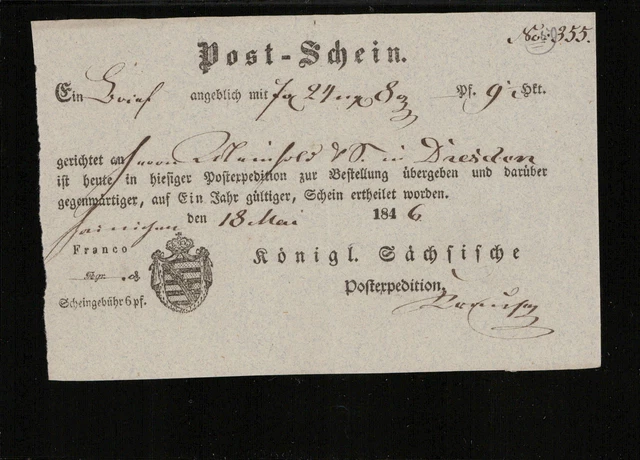 No. 355.
Post-Schein.
Ein Brief angeblich mit 24 Pf. 9 Hkt.
gerichtet an Herrn Meinhold & S. in Dresden
ist heute in hiesiger Postexpedition zur Bestellung übergeben und darüber
gegenwärtiger, auf Ein Jahr gültiger, Schein ertheilet worden.
Hainichen den 18 Mai 1846.
Franco
Ngr.
Scheingebühr 6 pf.
Königl. Sächsische
Postexpedition.